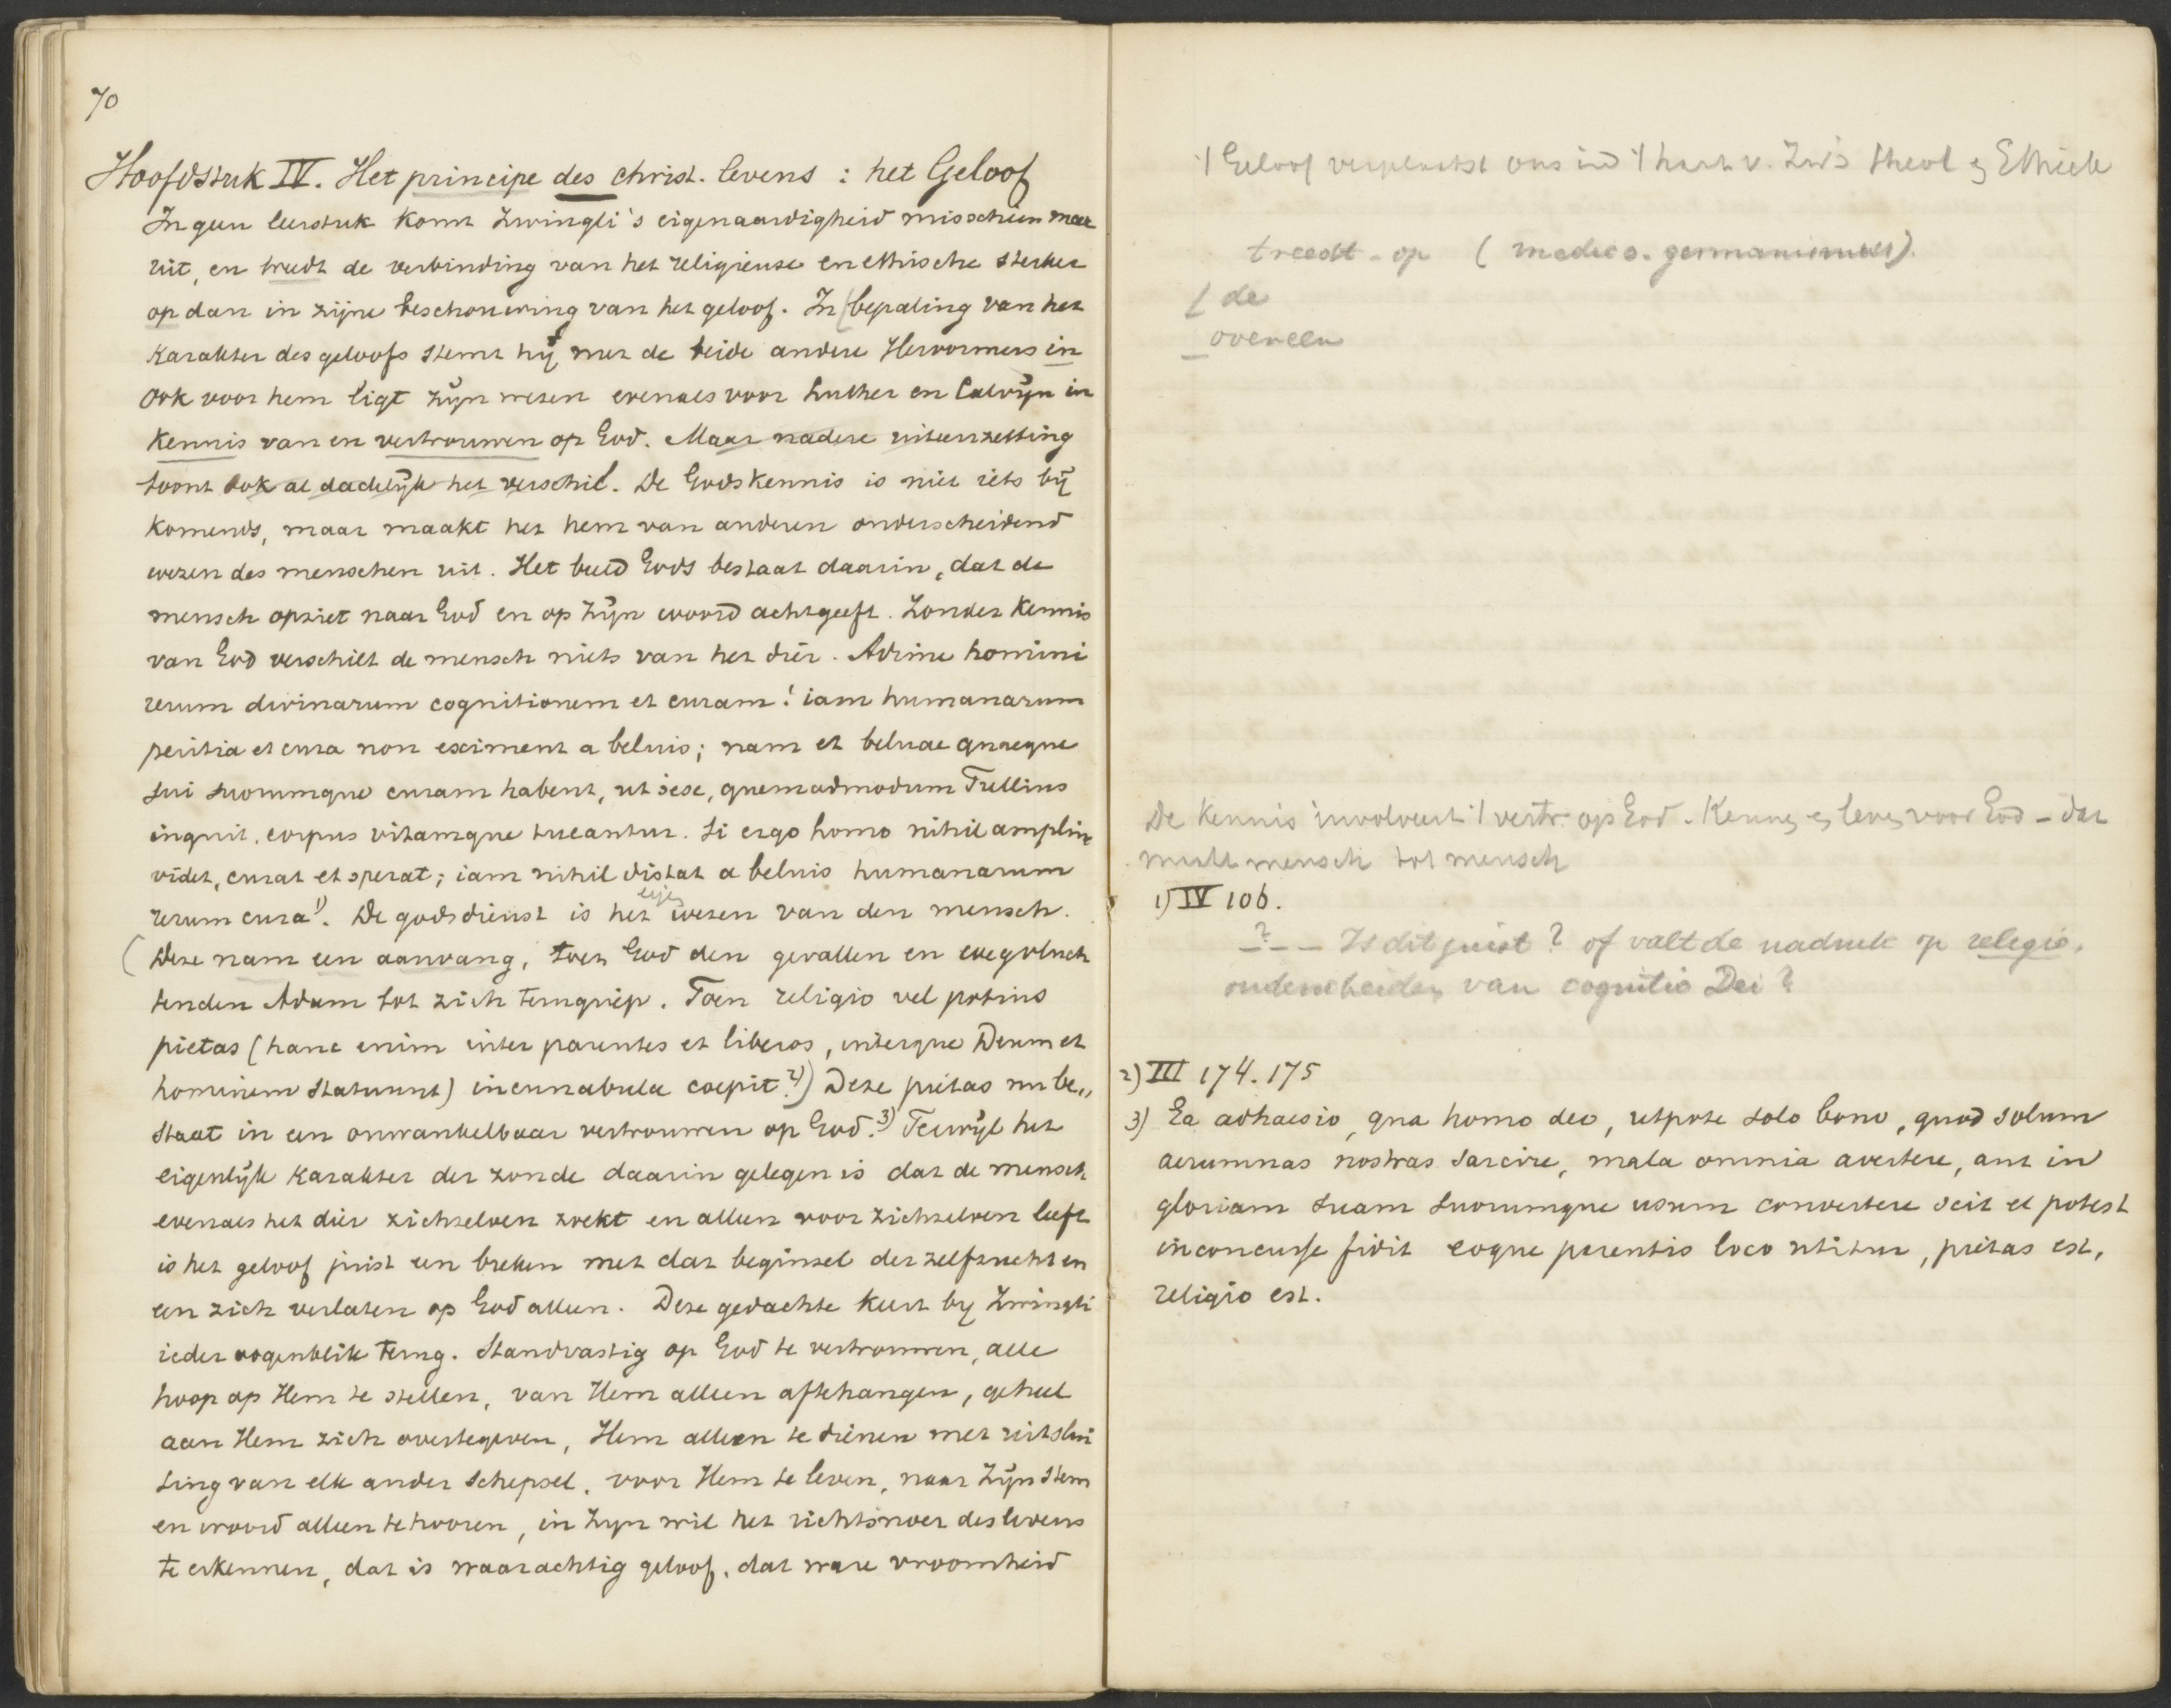 70
Hoofdstuk IV. Het principe des christ. levens : het Geloof
In geen leerstuk komt Zwingli's eigenaardigheid misschien meer
uit, en treedt de verbinding van het religieuse en ethische sterker
op dan in zijne beschouwing van het geloof. In bepaling van het
karakter des geloofs stemt hij met de beide andere Hervormers in
Ook voor hem ligt zijn wezen evenals voor Luther en Calvijn in
kennis van en vertrouwen op God. Maar nadere uiteenzetting
toont ook al dadelijk het verschil. De Godskennis is niet iets bij
komends, maar maakt het hem van anderen onderscheidend
wezen des menschen uit. Het beeld Gods bestaat daarin, dat de
mensch opziet naar God en op Zijn woord achtgeeft. Zonder kennis
van God verschilt de mensch niets van het dier. Adime homini
rerum divinarum cognitionem et curam! iam humanarum
peritia et cura non eximent a beluis; nam et beluae quaeque
sui suorumque curam habent, ut sese, quemadmodum Tullius
inquit, corpus vitamque tueantur. Si ergo homo nihil amplius
videt, curat et sperat; iam nihil distat a beluis humanarum
rerum cura 1). De godsdienst is het wezen van den mensch.
(Deze nam een aanvang, toen God den gevallen en wegvluch
tenden Adam tot zich terugriep. Toen religio vel potius
pietas (hanc enim inter parentes et liberos, interque Deum et
hominem statuunt) incunabula coepit. 2)) Deze pietas nu be„
staat in een onwankelbaar vertrouwen op God. 3) Terwijl het
eigenlijk karakter der zonde daarin gelegen is dat de mensch
evenals het dier zichzelven zoekt en alleen voor zichzelven leeft
is het geloof juist een breken met dat beginsel der zelfzucht en
een zich verlaten op God alleen. Deze gedachte keert by Zwingli
ieder oogenblik terug. Standvastig op God te vertrouwen, alle
hoop op Hem te stellen, van Hem alleen aftehangen, geheel
aan Hem zich overtegeven, Hem alleen te dienen met uitslui
ting van elk ander schepsel, voor Hem te leven, naar Zijn stem
en woord alleen te hooren, in Zyn wil het richtsnoer des levens
te erkennen, dat is waarachtig geloof, dat ware vroomheid
't Geloof verplaatst ons in 't hart v. Zw's theol en Ethiek
treedt - op ( medeo. germanismus).
[ de
overeen
De kennis involveert 't vertr. op God. Kennen en leven voor God - dat
maakt mensch tot mensch
1) IV 106.
? - - Is dit juist? of valt de nadruk op religio,
onderscheiden van cognitio Dei?
2) III 174. 175
3) Ea adhaesio, qua homo deo, utpote solo bono, quod solum
aerumnas nostras sarcire, mala omnia avertere, aut in
gloriam suam suorumque usum convertere scit et potest
inconcusse fidit eoque parentis loco utitur, pietas est,
religio est.